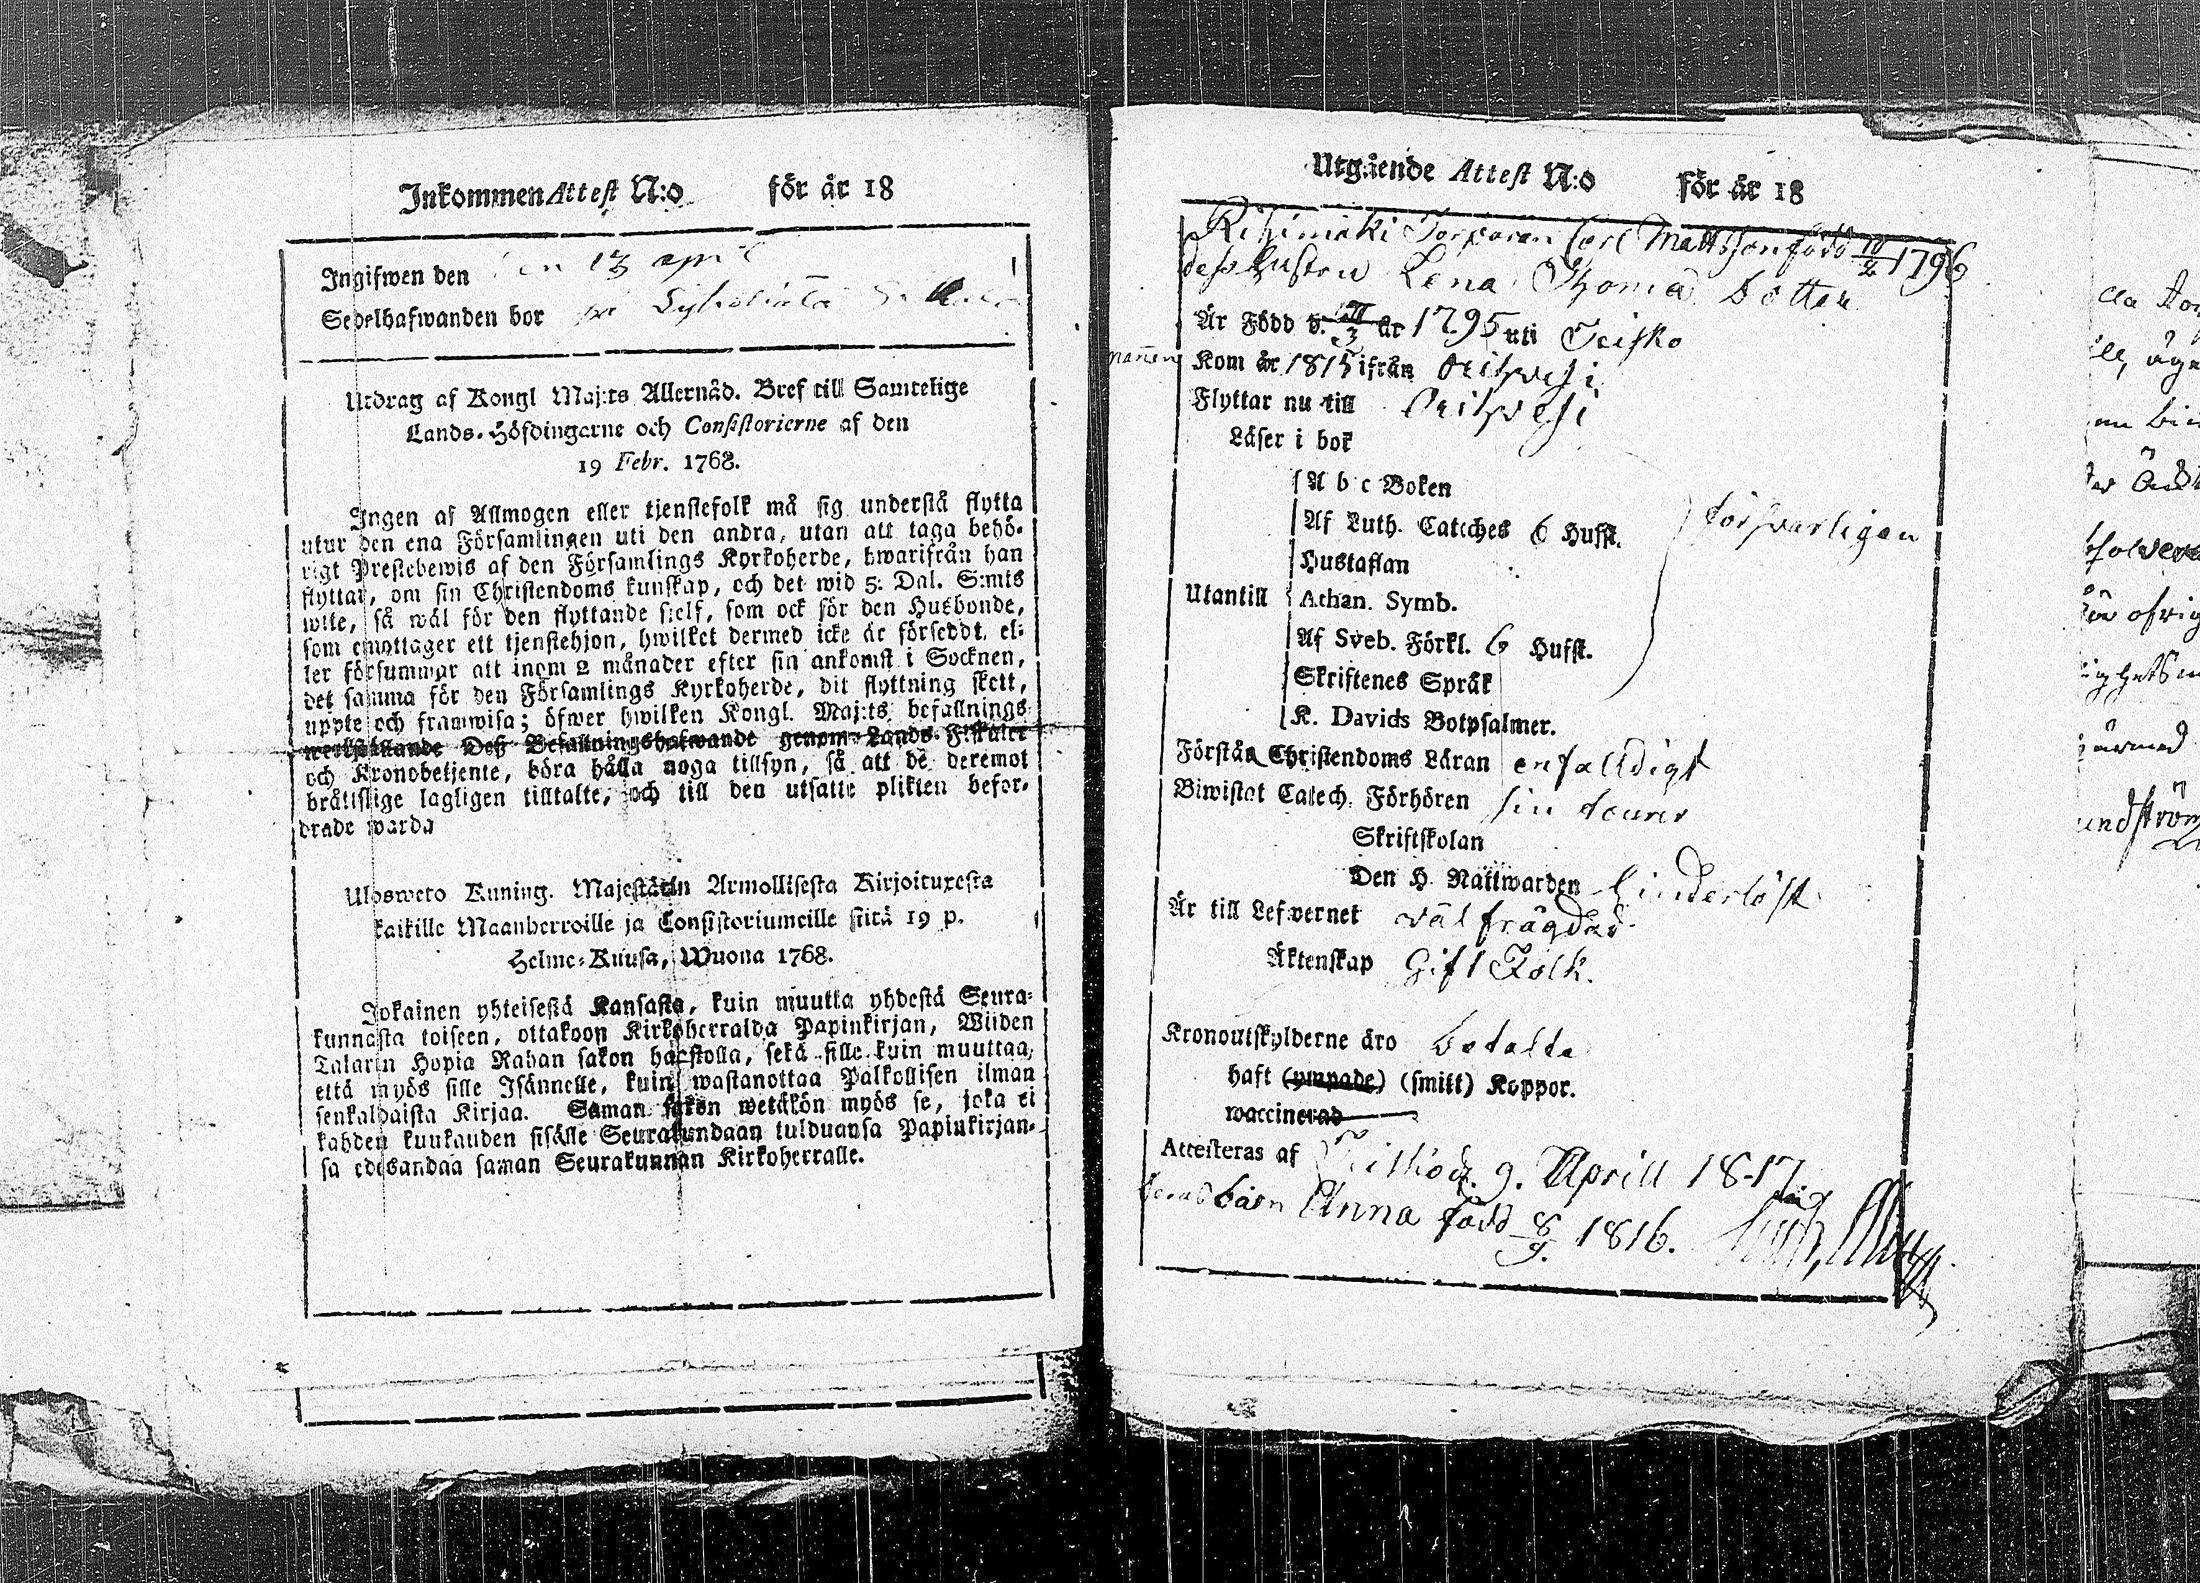 Inkommen Attest N:o för år 18
Ingifwen den den 13 april
Sedelhafwanden bor
Utdrag af Kongl Maj:ts Allernåd. Bref till Samtelige
Lands-Höfdingarne och Consistorierne af den
19 Febr. 1768.
Ingen af Allmogen eller tjenstefolk må sig understå flytta
utur den ena Församlingen uti den andra, utan att taga behö-
rigt Prestebewis af den Församlings Kyrkoherde, hwarifrån han
flyttar, om sin Christendoms kunskap, och det wid 5: Dal. S:mts
wite, så wäl för den flyttande sielf, som ock för den Husbonde,
som emottager ett tjenstehjon, hwilket dermed icke är försedt, el-
ler försummar att inom 2 månader efter sin ankomst i Socknen,
det samma för den Församlings Kyrkoherde, dit flyttning skett,
uppte och framwisa; öfwer hwilken Kongl. Maj:ts befallnings
werkställande Deß Befallningshafwande genom Lands-Fiskaler
och Kronobetjente, böra hålla noga tillsyn, så att de deremot
bråttslige lagligen tilltalte, och till den utsatte plikten befor-
drade warda
Ulosweto Kuning. Majestätin Armollisesta Kirjoituxesta
kaikille Maanherroille ja Consistoriumeille siitä 19 p.
Helme-Kuusa, Wuona 1768.
Jokainen yhteisestä Kansasta, kuin muutta yhdestä Seura-
kunnasta toiseen, ottakoon Kirkoherralda Papinkirjan, Wiiden
Talarin Hopia Rahan sakon haastolla, sekä sille kuin muuttaa,
että myös sille Isännelle, kuin wastanottaa Palkollisen ilman
senkaldaista Kirjaa. Saman sakon wetäkön myös se, joka ei
kahden kuukauden sisälle Seurakundaan tulduansa Papinkirjan-
sa edesandaa saman Seurakunnan Kirkoherralle.
Utgående Attest N:o för år 18
Rihimäki Torparen Carl Mattsson född 10/2 1796
dess hustru Lena Thomä dotter
Är Född d. 17/3 år 1795 uti Teisko
mannen Kom år 1815 ifrån Orihvesi
Flyttar nu till Orihvesi
Läser i bok
A b c Boken
Af Luth. Catches 6 Hufst. försvarligen
Hustaflan
Utantill Athan. Symb.
Af Sveb. Förkl. 6 Hufst.
Skriftenes Språk
K. Davids Botpsalmer.
Förstår Christendoms Läran enfalldigt
Biwistat Catech. Förhören sin tourer
Skriftskolan
Den H. Nattwarden hinderlöst
Är till Lefwernet välfrägdad.
Äktenskap Gift Folk.
Kronoutskylderne äro betalte
haft (ympade) (smitt) Koppor.
waccinerad
Attesteras af Teisko d. 9. Aprill 1817.
barn Anna född 8/9. 1816.